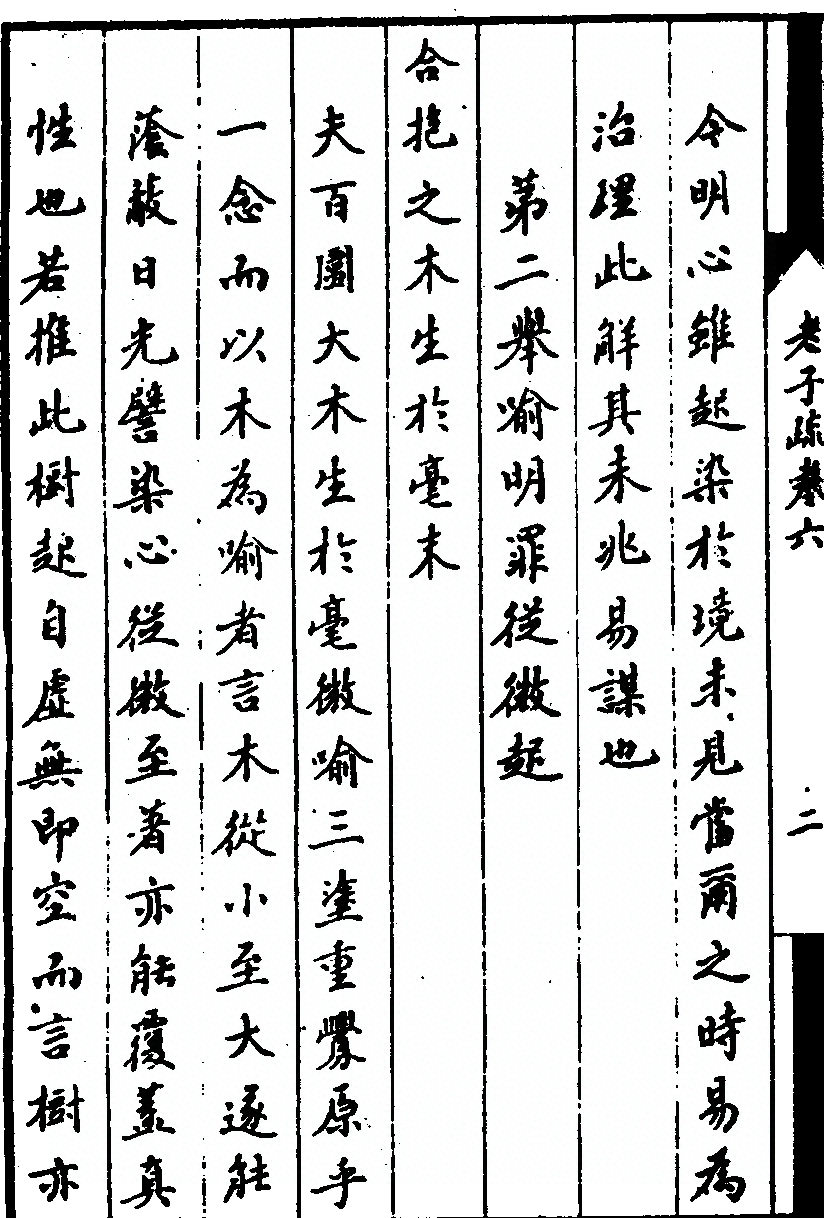 老子疏卷六
二
令明心雖起染於境未見當爾之時易為
治理此解其未兆易謀也
第二舉喻明罪從微起
合抱之木生於毫末
夫百圍大木生於毫微喻三塗重舋原乎
一念而以木為喻者言木從小至大遂能
蔭蔽日光譬染心從微至著亦能覆蓋真
性也若推此樹起自虛無即空而言樹亦